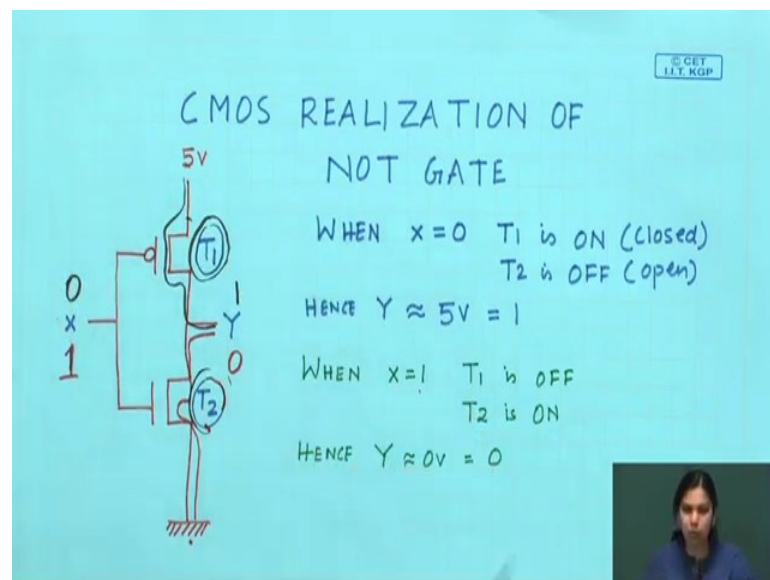 © CET
I.I.T. KGP
CMOS REALIZATION OF
NOT GATE
5V
T1
WHEN X=0 T1 is ON (closed)
T2 is OFF (open)
0
X
1
1
Y
0
HENCE Y ≈ 5V = 1
WHEN X=1 T1 is OFF
T2
T2 is ON
HENCE Y ≈ 0V = 0